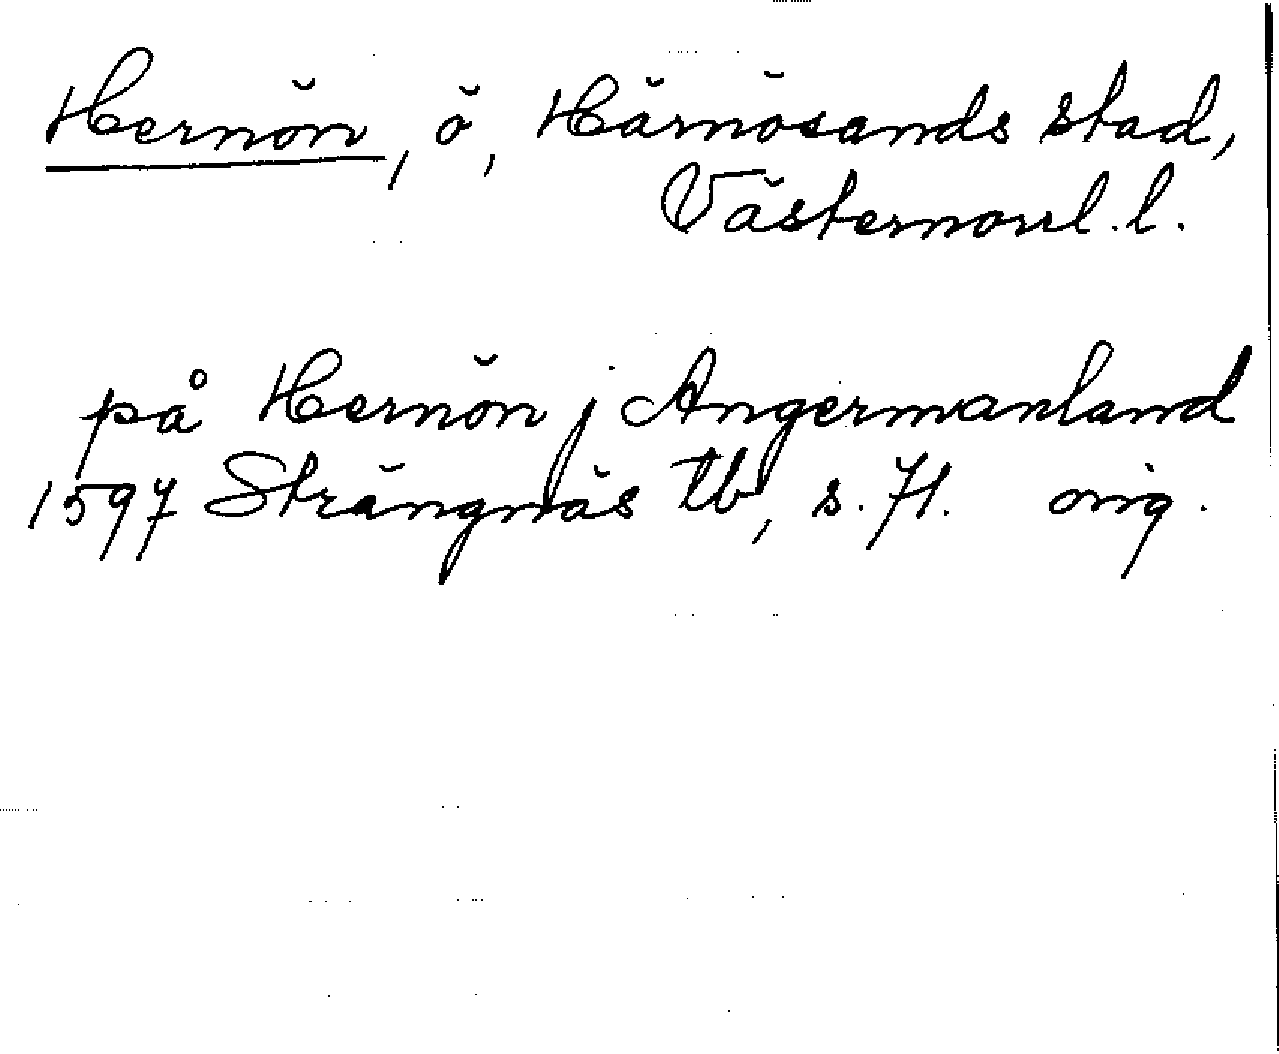 Hernön, ö, Härnösands stad,
Västernorrl. l.
på Hernön j Angermanland
1597 Strängnäs tb, s. 71. orig.